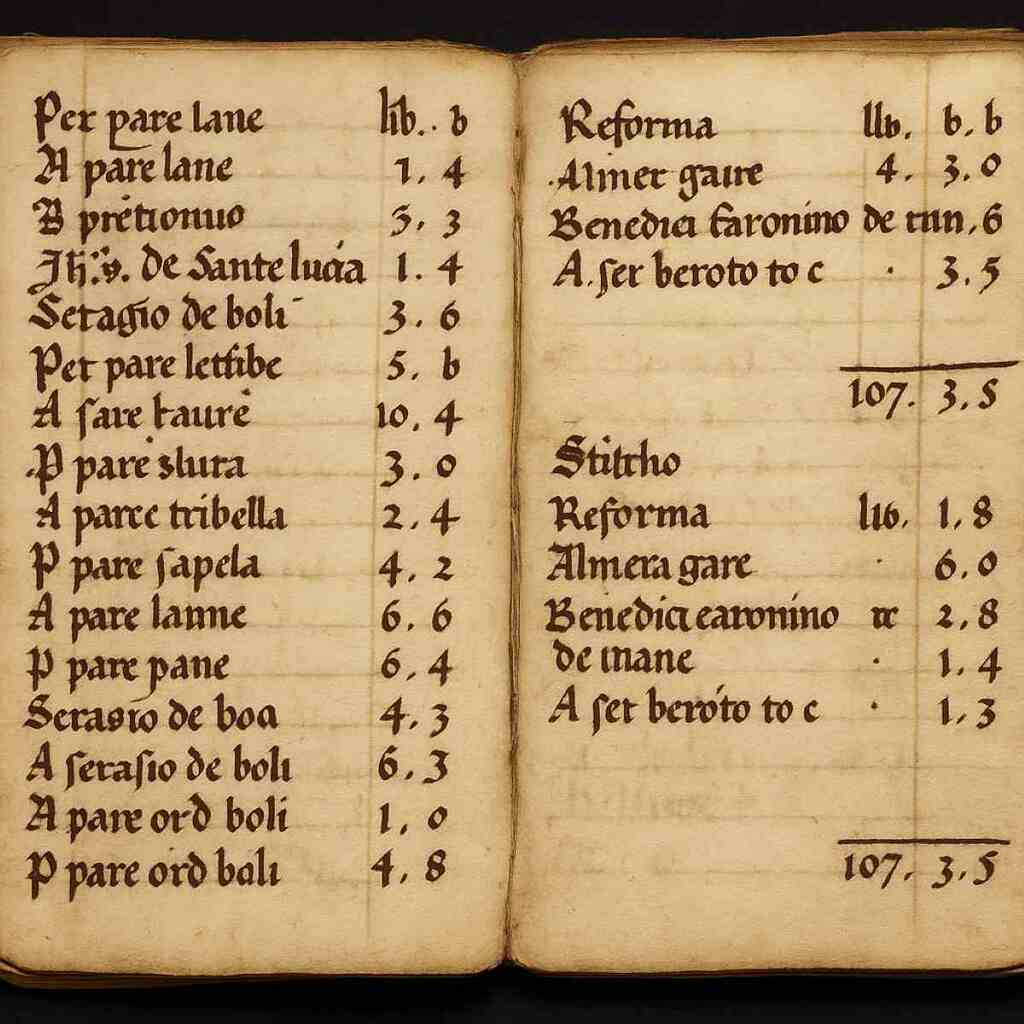 Per pare lane lib. . b
A pare lane 1. 4
B pretionuo 5. 3
Jh's. de Sante lucia 1. 4
Setagio de boli 3. 6
Per pare letfibe 5. b
A fare taure 10. 4
P pare slura 3. 0
A parec tribella 2. 4
P pare sapela 4. 2
A pare lanne 6. 6
P pare pane 6. 4
Serasio de boa 4. 3
A serasio de boli 6. 3
A pare ord boli 1. 0
P pare ord boli 4. 8
Reforma llb. b. b
Almer gaure 4. 3.0
Benedici faronino de run. 6
A. ser beroto to c . 3.5
107. 3.5
Stitcho
Reforma lib. 1.8
Almera gare . 6.0
Benedici earonino rc 2.8
de mane . 1.4
A ser beroto to c . 1.3
107. 3.5